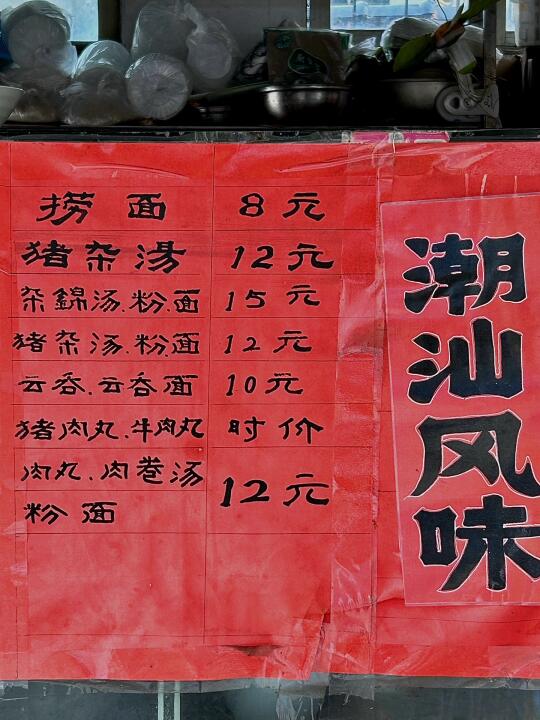 捞面 8元
猪杂湯 12元
杂錦汤.粉.面 15元
猪杂汤.粉.面 12元
云吞.云吞面 10元
猪肉丸.牛肉丸 时价
肉丸.肉卷汤 12元
粉面
潮汕风味